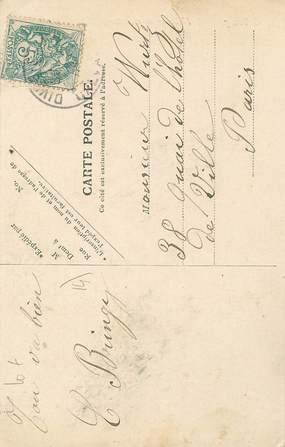 CARTE POSTALE
Ce côté est exclusivement réservé à l'adresse.
Monsieur Wurtz
38 Quai de l'hôtel
de Ville
Paris
No.
*Expédié par
M
Demt à
Rue
*L'inscription du nom et de l'adresse de
l'expéditeur est facultative.
Tout va bien